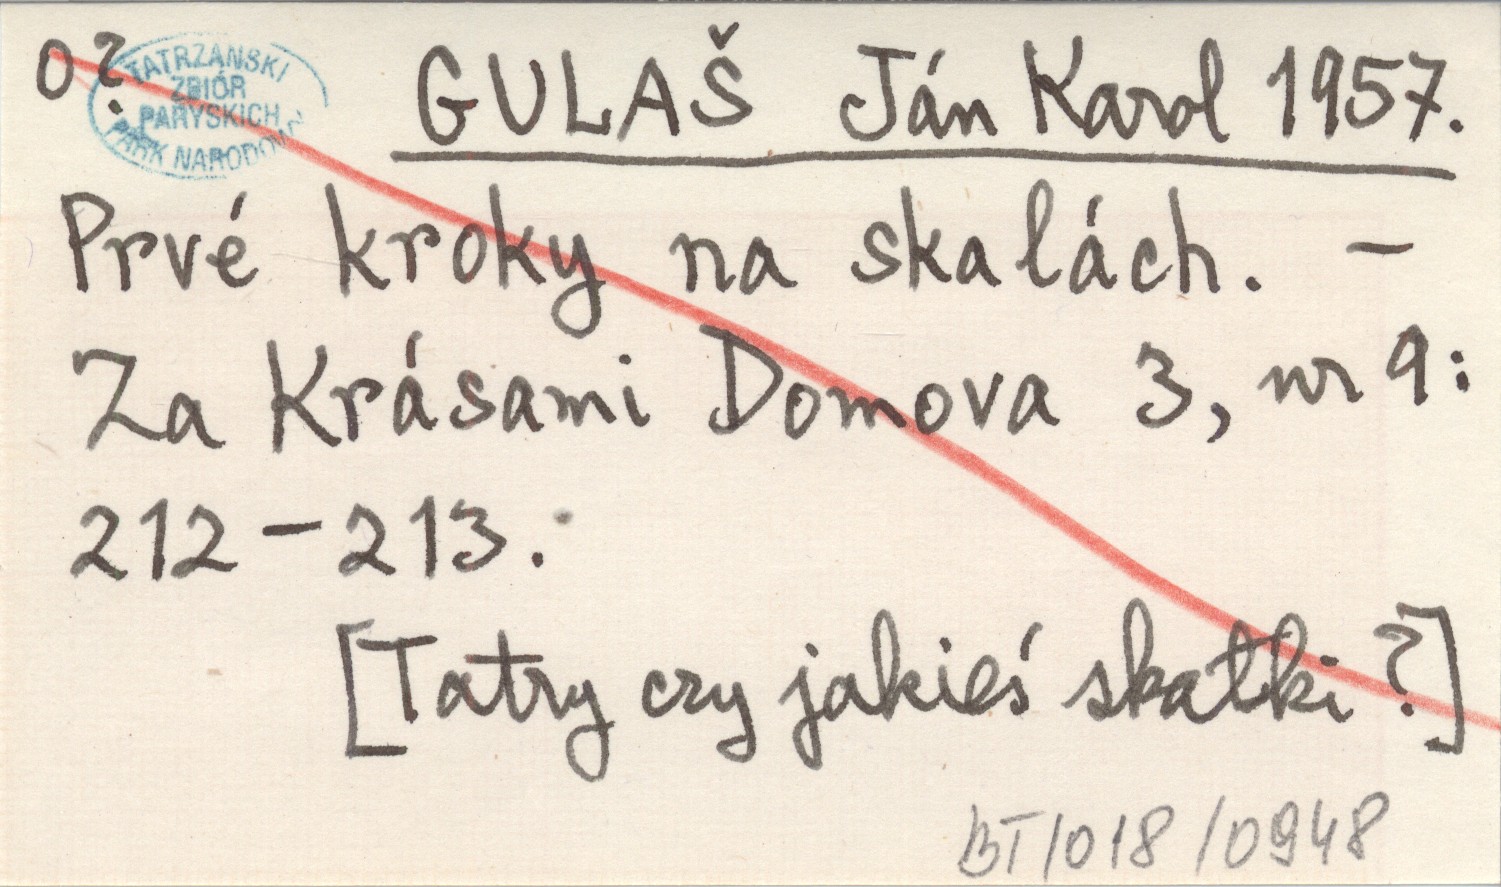 O?
TATRZAŃSKI
ZBIÓR
PARYSKICH
PARK NARODOWY
GULAŠ Ján Karol 1957.
Prvé kroky na skalách. –
Za Krásami Domova 3, nr 9:
212–213.
[Tatry czy jakieś skałki?]
BT/018/0948